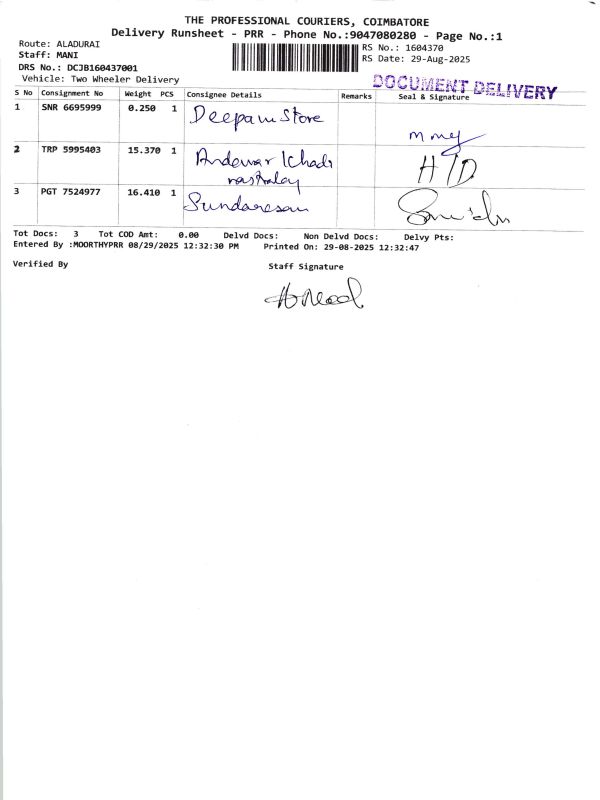 THE PROFESSIONAL COURIERS, COIMBATORE
Delivery Runsheet - PRR - Phone No.:9047080280 - Page No.:1
Route: ALADURAI
Staff: MANI
DRS No.: DCJB160437001
Vehicle: Two Wheeler Delivery
RS No.: 1604370
RS Date: 29-Aug-2025
DOCUMENT DELIVERY
S No Consignment No Weight PCS Consignee Details Remarks Seal & Signature
1 SNR 6695999 0.250 1 Deepam Store
2 TRP 5995403 15.370 1 Andavar Khadi
H/D
3 PGT 7524977 16.410 1 Sundaresan
Tot Docs: 3 Tot COD Amt: 0.00 Delvd Docs: Non Delvd Docs: Delvy Pts:
Entered By :MOORTHYPRR 08/29/2025 12:32:30 PM Printed On: 29-08-2025 12:32:47
Verified By Staff Signature